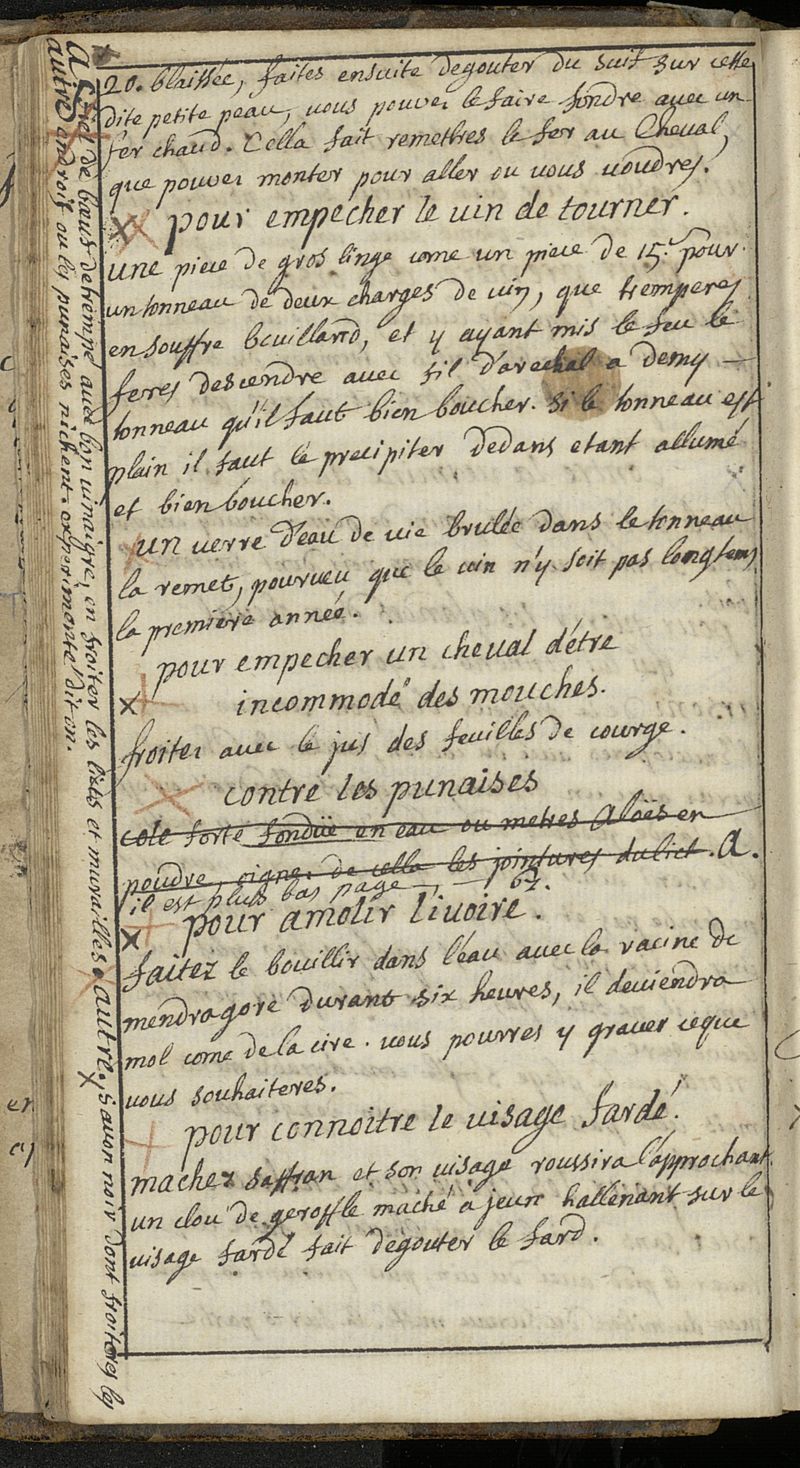 20. blaissée, faites ensuite degouter du suif sur cette
dite petite peau, vous pouvez le faire fondre avec un
fer chaud. Cella fait remettres le fer au Cheval,
que pouvez monter pour aller ou vous voudres.
pour empecher le vin de tourner.
une piece de gros linge come un piece de 15.ˢ pour
un tonneau de deux charges de vin, que tremperes
en souffre bouilland, et y ayant mis le feu le
feres descendre avec fil d'arechal a demy —
tonneau qu'il faut bien boucher. si le tonneau est
plain il faut le precipiter dedans etant allumé
et bien boucher.
un verre d'eau de vie brulée dans le tonneau
la remet, pourveu que le vin n'y soit pas longtems
la premiere année.
pour empecher un cheval d'étre
incommodé des mouches.
froites avec le jus des feuilles de courge.
contre les punaises
cole forte fondüe en eau ou metres Aloës en
poudre, oignes de cella les jointures du lict. A.
il est plus bas page — 67.
pour amolir l'ivoire.
faitez le bouillir dans l'eau avec la racine de
mendragore durant six heures, il deviendra
mol come de la cire. vous pourres y graver ce que
vous souhaiteres.
pour connoitre le visage fardé.
machez saffran et son visage roussira l'approchant
un clou de geroffle maché a jeun hallenant sur le
visage fardé fait degouter le fard.
A de baus detrempé avec bon vinaigre, en froiter les licts et murailles. autre, savon noir dont froiteres les
autre androit ou les punaises nichent. experimenté dit on.